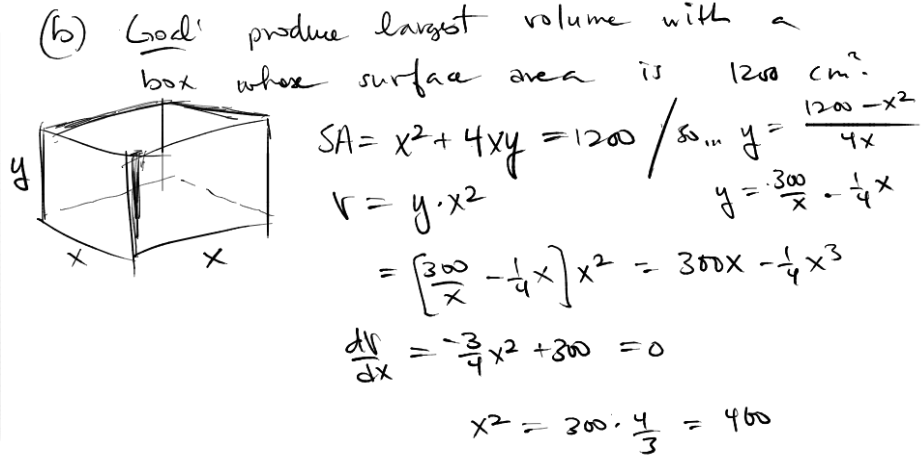 (b) Goal: produce largest volume with a
box whose surface area is 1200 cm².
SA = x² + 4xy = 1200 / so... y = (1200 - x²)/(4x)
y
y = 300/x - 1/4 x
V = y · x²
x x
= [300/x - 1/4 x] x² = 300x - 1/4 x³
dV/dx = -3/4 x² + 300 = 0
x² = 300 · 4/3 = 400